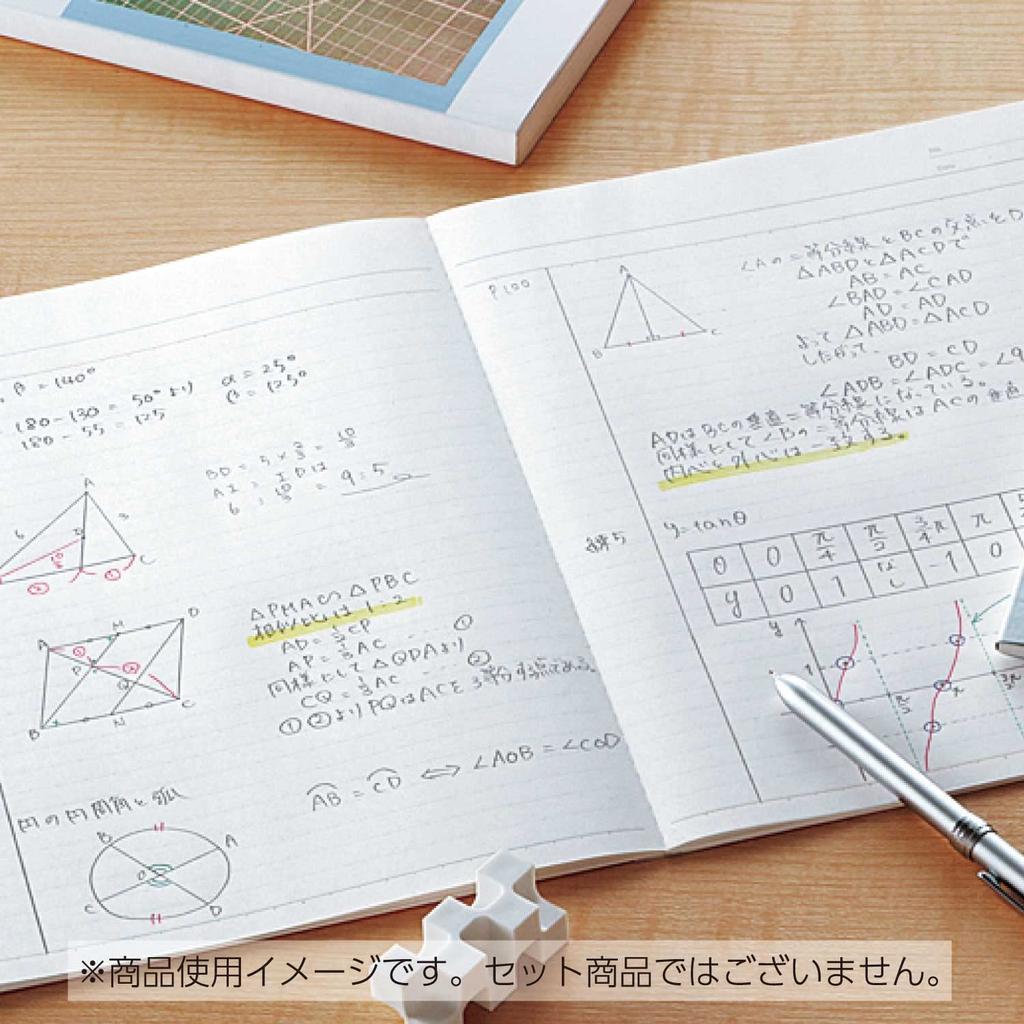 β = 140°
180-130 = 50°より α = 25°
180-55 = 125 β = 125°
BD = 5 × 2/3 = 10/3
AI = IDは
6 : 10/3 = 9:5
A
6
3
C
② ①
△PMA ∽ △PBC
相似比は 1:2
AD = 1/3 CP
AP = 1/3 AC … ①
同様にして △QDAより
CQ = 1/3 AC … ②
①②より PQはACを3等分する点である。
A M D
① P ②
Q
B N C
円の円周角と弧
AB = CD ⇔ ∠AOB = ∠COD
B A
O
C D
P100
A
B C
∠Aの二等分線とBCの交点をD
△ABDと△ACDで
AB = AC
∠BAD = ∠CAD
AD = AD
よって △ABD = △ACD
したがって、
BD = CD
∠ADB = ∠ADC = ∠9
ADはBCの垂直二等分線になっている。
同様にして∠Bの二等分線はACの垂直
内心と外心は一致する。
y = tanθ
θ 0 π/4 π/2 3/4π π 5
y 0 1 なし -1 0
y
1
π/2 π 3π/2
※商品使用イメージです。セット商品ではございません。